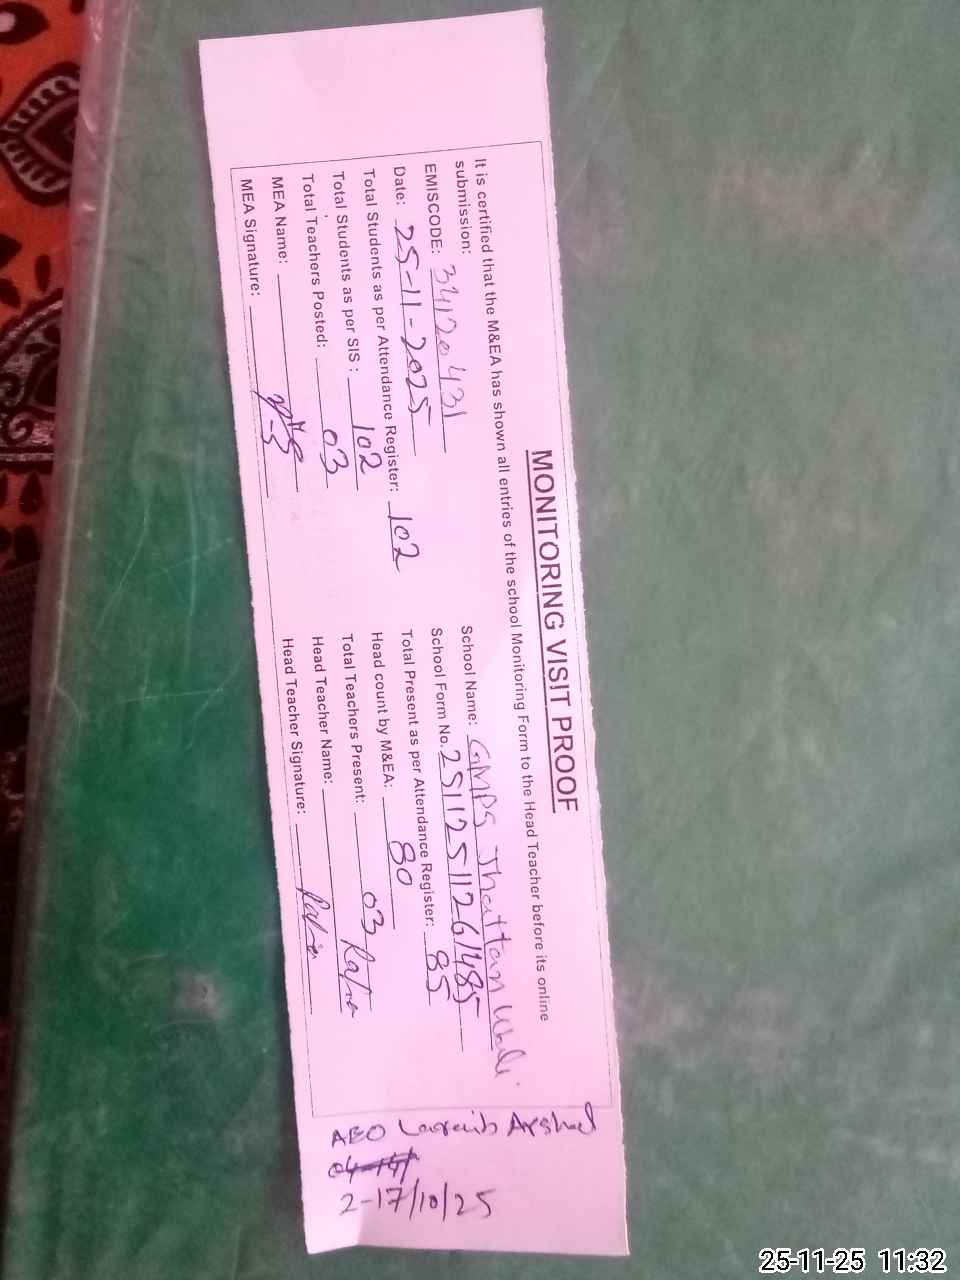 MONITORING VISIT PROOF
It is certified that the M&EA has shown all entries of the school Monitoring Form to the Head Teacher before its online
submission:
EMISCODE: 34120431
School Name: GMPS Jhattan Wali.
Date: 25-11-2025
School Form No. 25112511261485
Total Students as per Attendance Register: 102
Total Present as per Attendance Register: 85
Total Students as per SIS : 102
Head count by M&EA: 80
Total Teachers Posted: 03
Total Teachers Present: 03
MEA Name:
Head Teacher Name: Rafia
MEA Signature:
Head Teacher Signature: Rafia
AEO Laraib Arshad
2-17/10/25
25-11-25 11:32